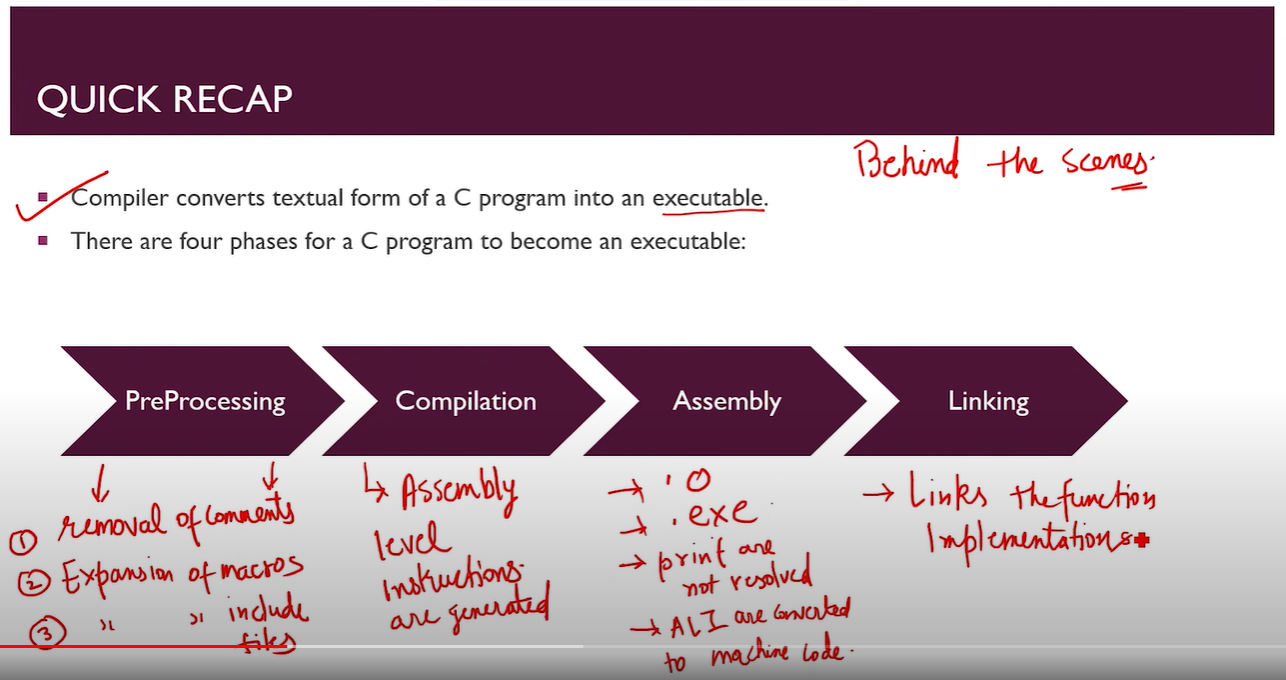 QUICK RECAP
Behind the scenes.
Compiler converts textual form of a C program into an executable.
There are four phases for a C program to become an executable:
PreProcessing
Compilation
Assembly
Linking
① removal of comments
② Expansion of macros
③ " " include
files
Assembly
level
instructions.
are generated
→ .o
→ .exe
→ printf are
not resolved
→ ALI are converted
to machine code.
→ Links the function
Implementations